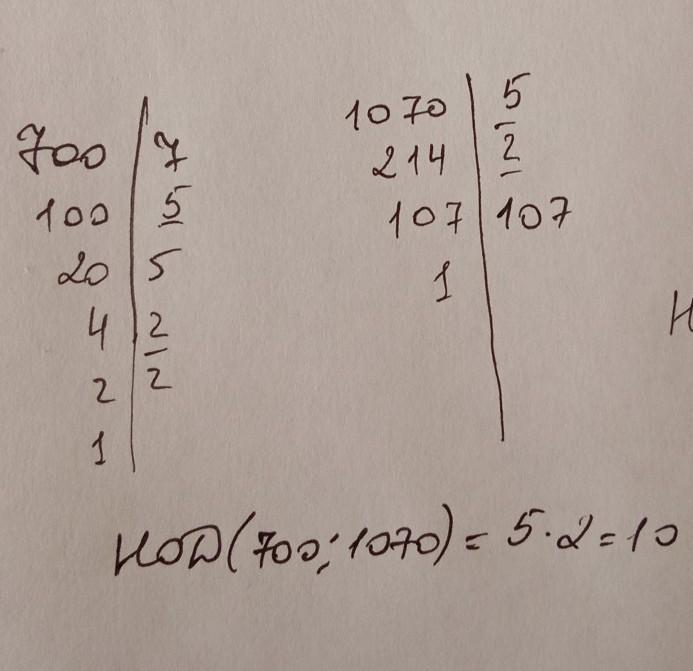 700 | 7
100 | 5
20 | 5
4 | 2
2 | 2
1 |
1070 | 5
214 | 2
107 | 107
1 |
Н
НОД(700; 1070) = 5·2 = 10